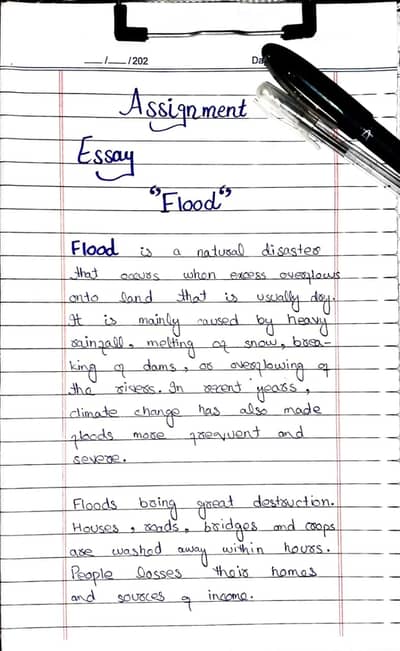 __/__/202
Da
Assignment
Essay
"Flood"
Flood is a natural disaster
that occurs when excess overflows
onto land that is usually dry.
It is mainly caused by heavy
rainfall, melting of snow, brea-
king of dams, or overflowing of
the rivers. In recent years,
climate change has also made
floods more frequent and
severe.
Floods bring great destruction.
Houses, roads, bridges and crops
are washed away within hours.
People losses their homes
and sources of income.